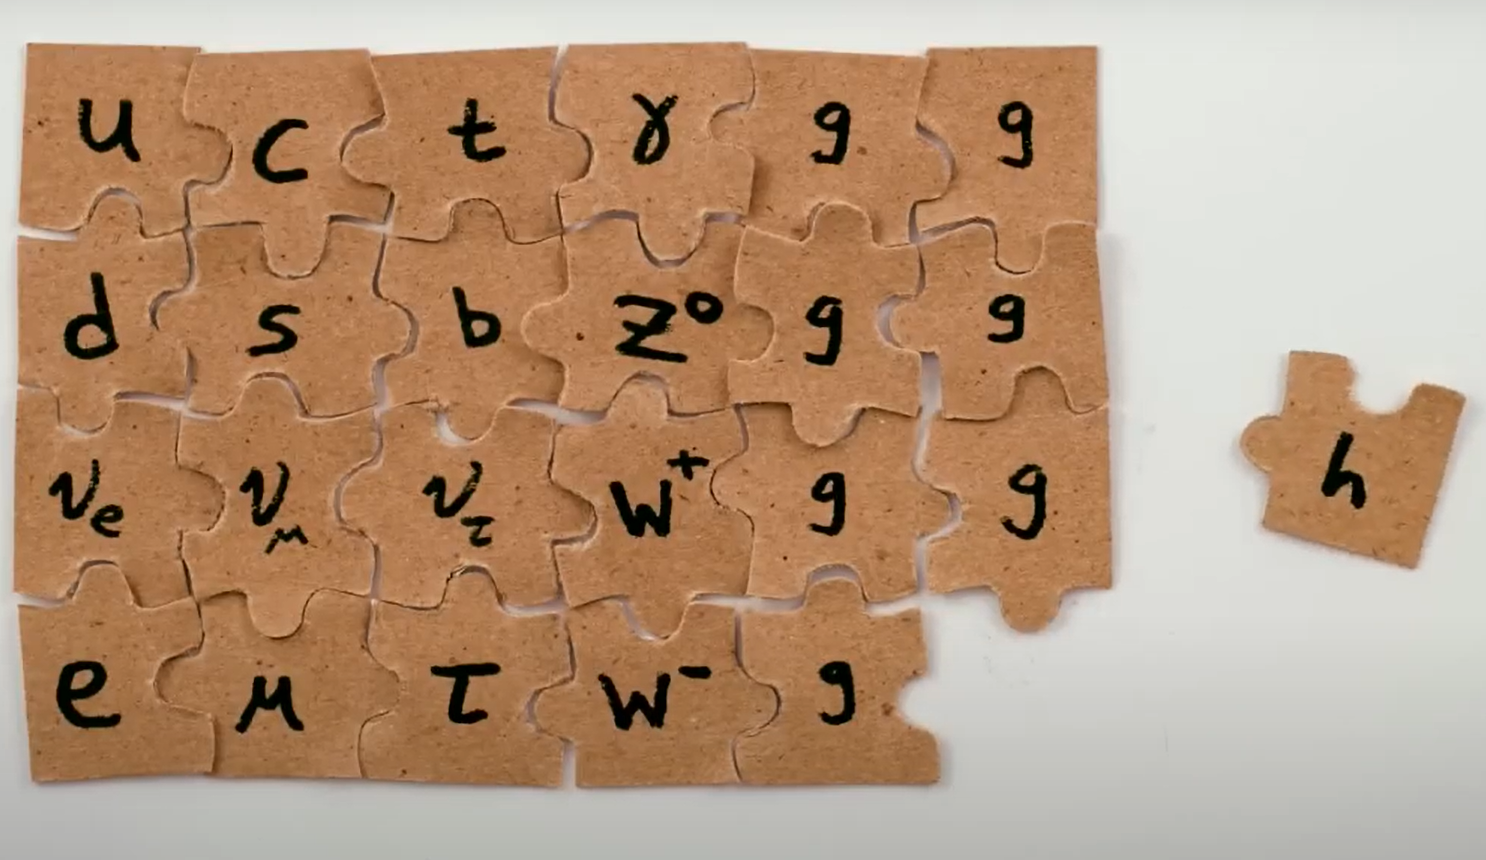 u c t γ g g
d s b Z⁰ g g
νe νμ ντ W⁺ g g
h
e μ τ W⁻ g